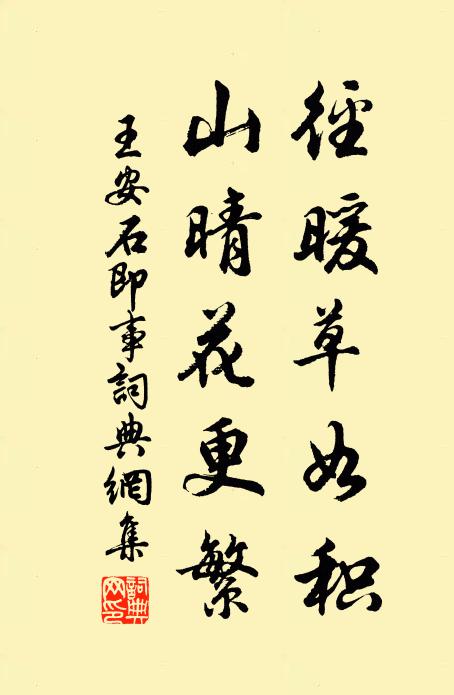 徑暖草如积
山晴花更繁
王安石即事詞典網集
詞典網印